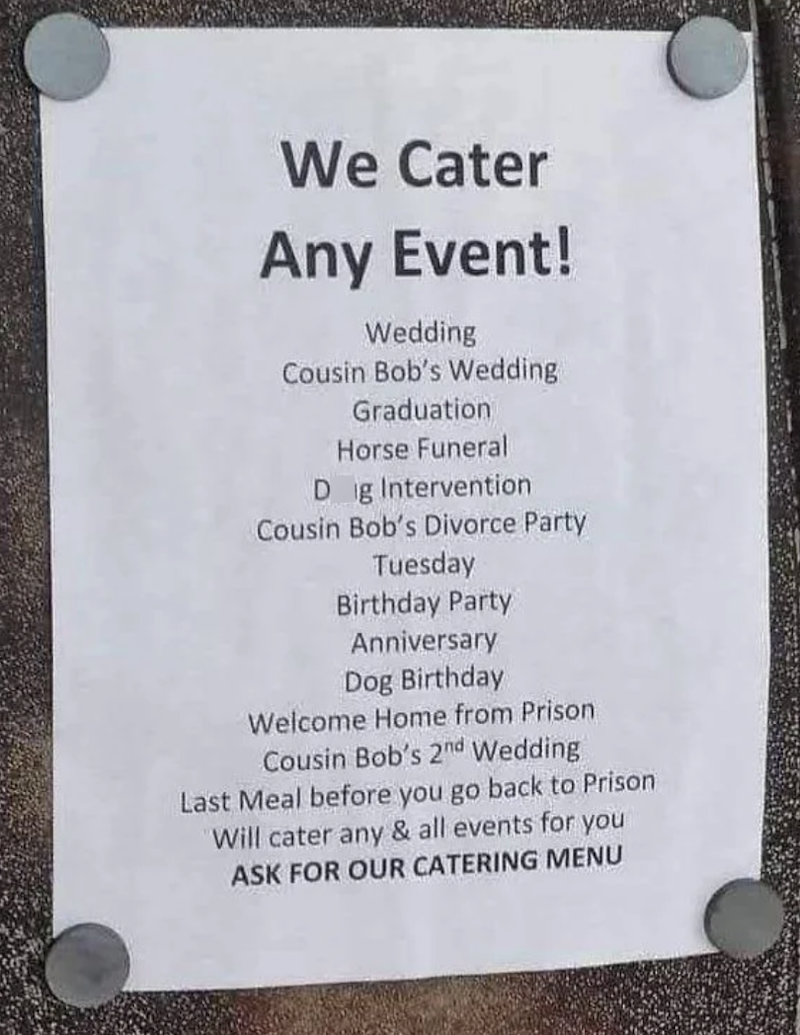 We Cater
Any Event!
Wedding
Cousin Bob's Wedding
Graduation
Horse Funeral
Intervention
Cousin Bob's Divorce Party
Tuesday
Birthday Party
Anniversary
Dog Birthday
Welcome Home from Prison
Cousin Bob's 2nd Wedding
Last Meal before you go back to Prison
Will cater any & all events for you
ASK FOR OUR CATERING MENU